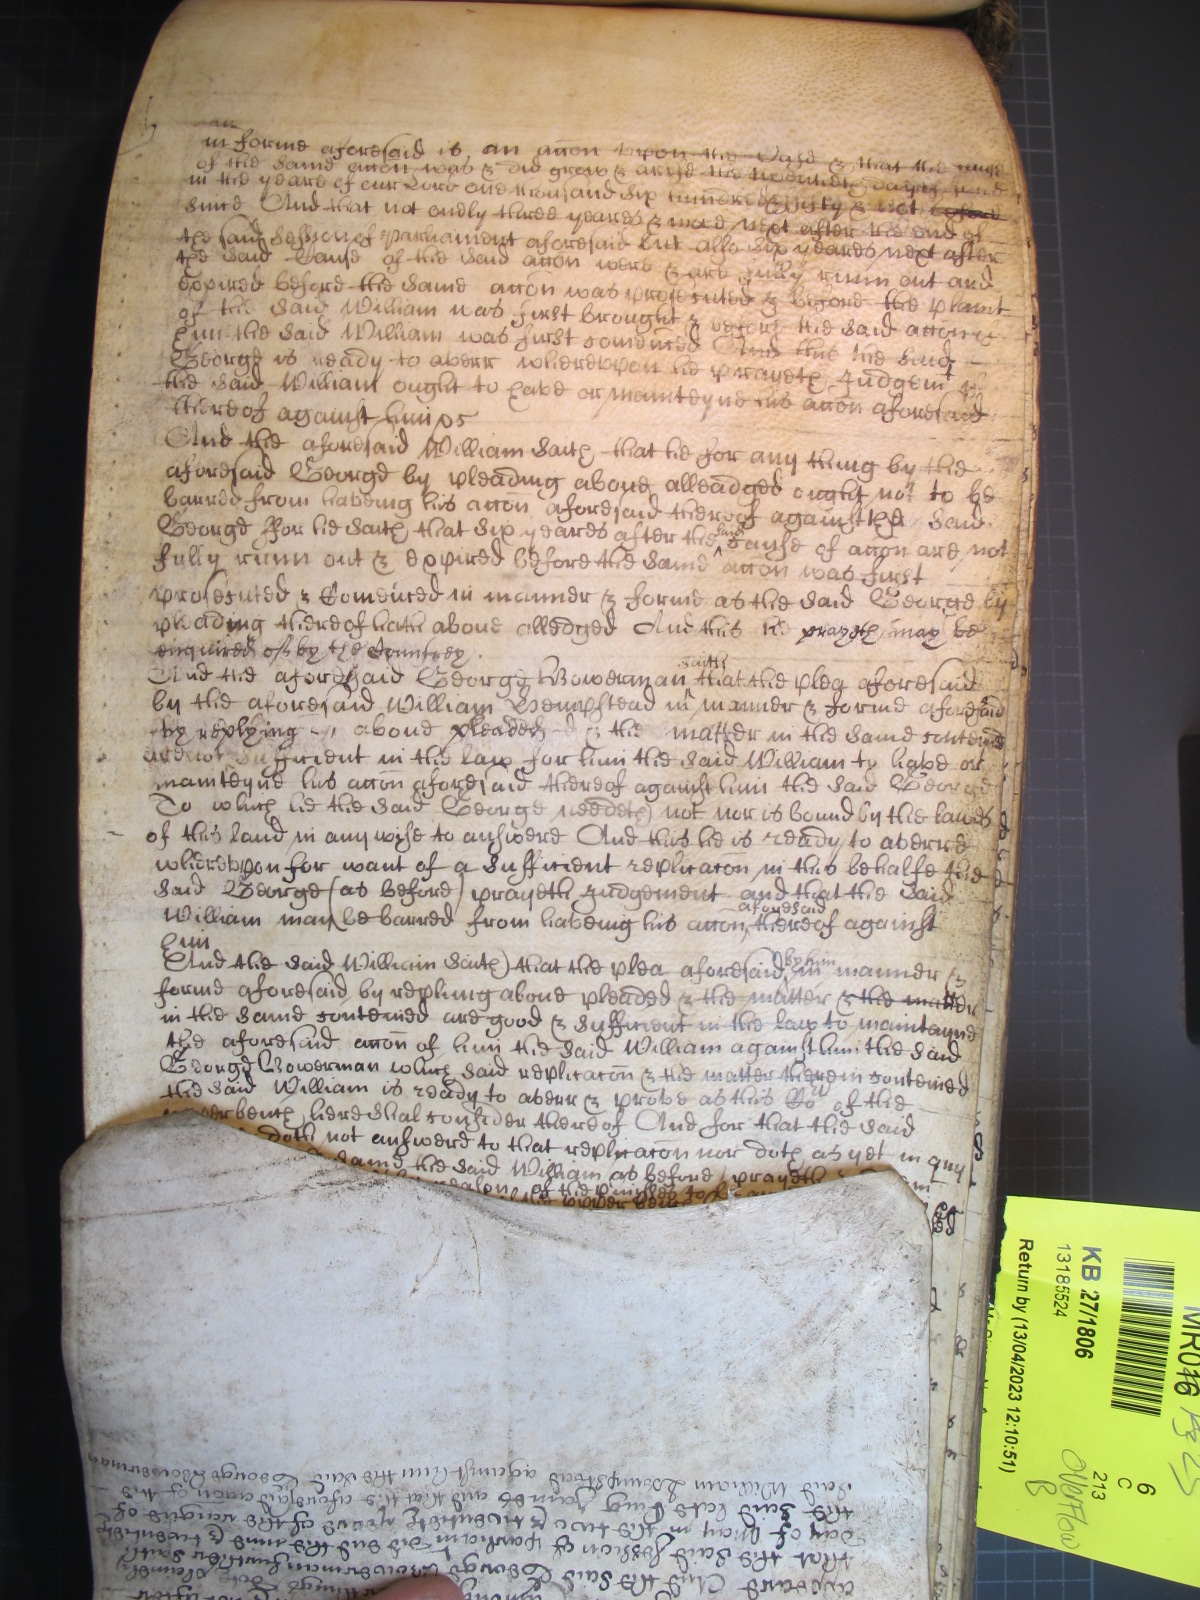 in forme aforesaid is an accon upon the Case & that the cause
of the same accon was & did grow & arise the twentieth day of
in the yeares of our Lord one thousand six hundred fifty & not before
since And that not onely three yeares & more next after the end of
the said Session of Parliament aforesaid but also six yeares next after
the said Cause of the said accon were & are fully runn out and
expired before the same accon was prosecuted & before the plaint
of the said William was first brought & before the said accon of
him the said William was first comenced And this the said
George is ready to averr whereupon he prayeth Judgemt if
the said William ought to have or mainteyne his accon aforesaid
thereof against him &c
And the aforesaid William saith that he for any thing by the
aforesaid George by pleading above alleadged ought not to be
barred from haveing his accon aforesaid thereof against the said
George for he saith that six yeares after the said Cause of accon are not
fully runn out & expired before the same accon was first
prosecuted & Comenced in manner & forme as the said George by
pleading thereof hath above alledged And this he prayeth may be
enquired of by the Countrey.
And the aforesaid George Bowerman saith that the plea aforesaid
by the aforesaid William Hempstead in manner & forme aforesaid
by replying above pleaded & the matter in the same conteyned
are not sufficient in the law for him the said William to have or
mainteyne his accon aforesaid thereof against him the said George
To which he the said George needeth not nor is bound by the lawes
of this land in any wise to answere And this he is ready to averre
whereupon for want of a sufficient replicacon in this behalfe the
said George (as before) prayeth Judgement and that the said
William may be barred from haveing his accon aforesaid thereof against
him
And the said William saith that the plea aforesaid by him in manner &
forme aforesaid by repling above pleaded & the matter & the matter
in the same conteined are good & sufficient in the law to maintayne
the aforesaid accon of him the said William against him the said
George Bowerman which said replicacon & the matter therein conteined
the said William is ready to averr & prove as this Cot of the
upper bench here shal consider thereof And for that the said
doth not answere to that replicacon nor doth as yet in any
same the said William as before prayeth
reason of the
said William Hempstead against him the said George Bowerman
the said late King James and that the aforesaid accon of the
day of May in the two & twentieth yeare of the raigne of
that the said Session of Parliamt did end the nine & twentieth
accord And the said George Bowerman further saith
KB 27/1806
13185524
Return by (13/04/2023 12:10:51)
MR016
6
C
213
Overflow
B